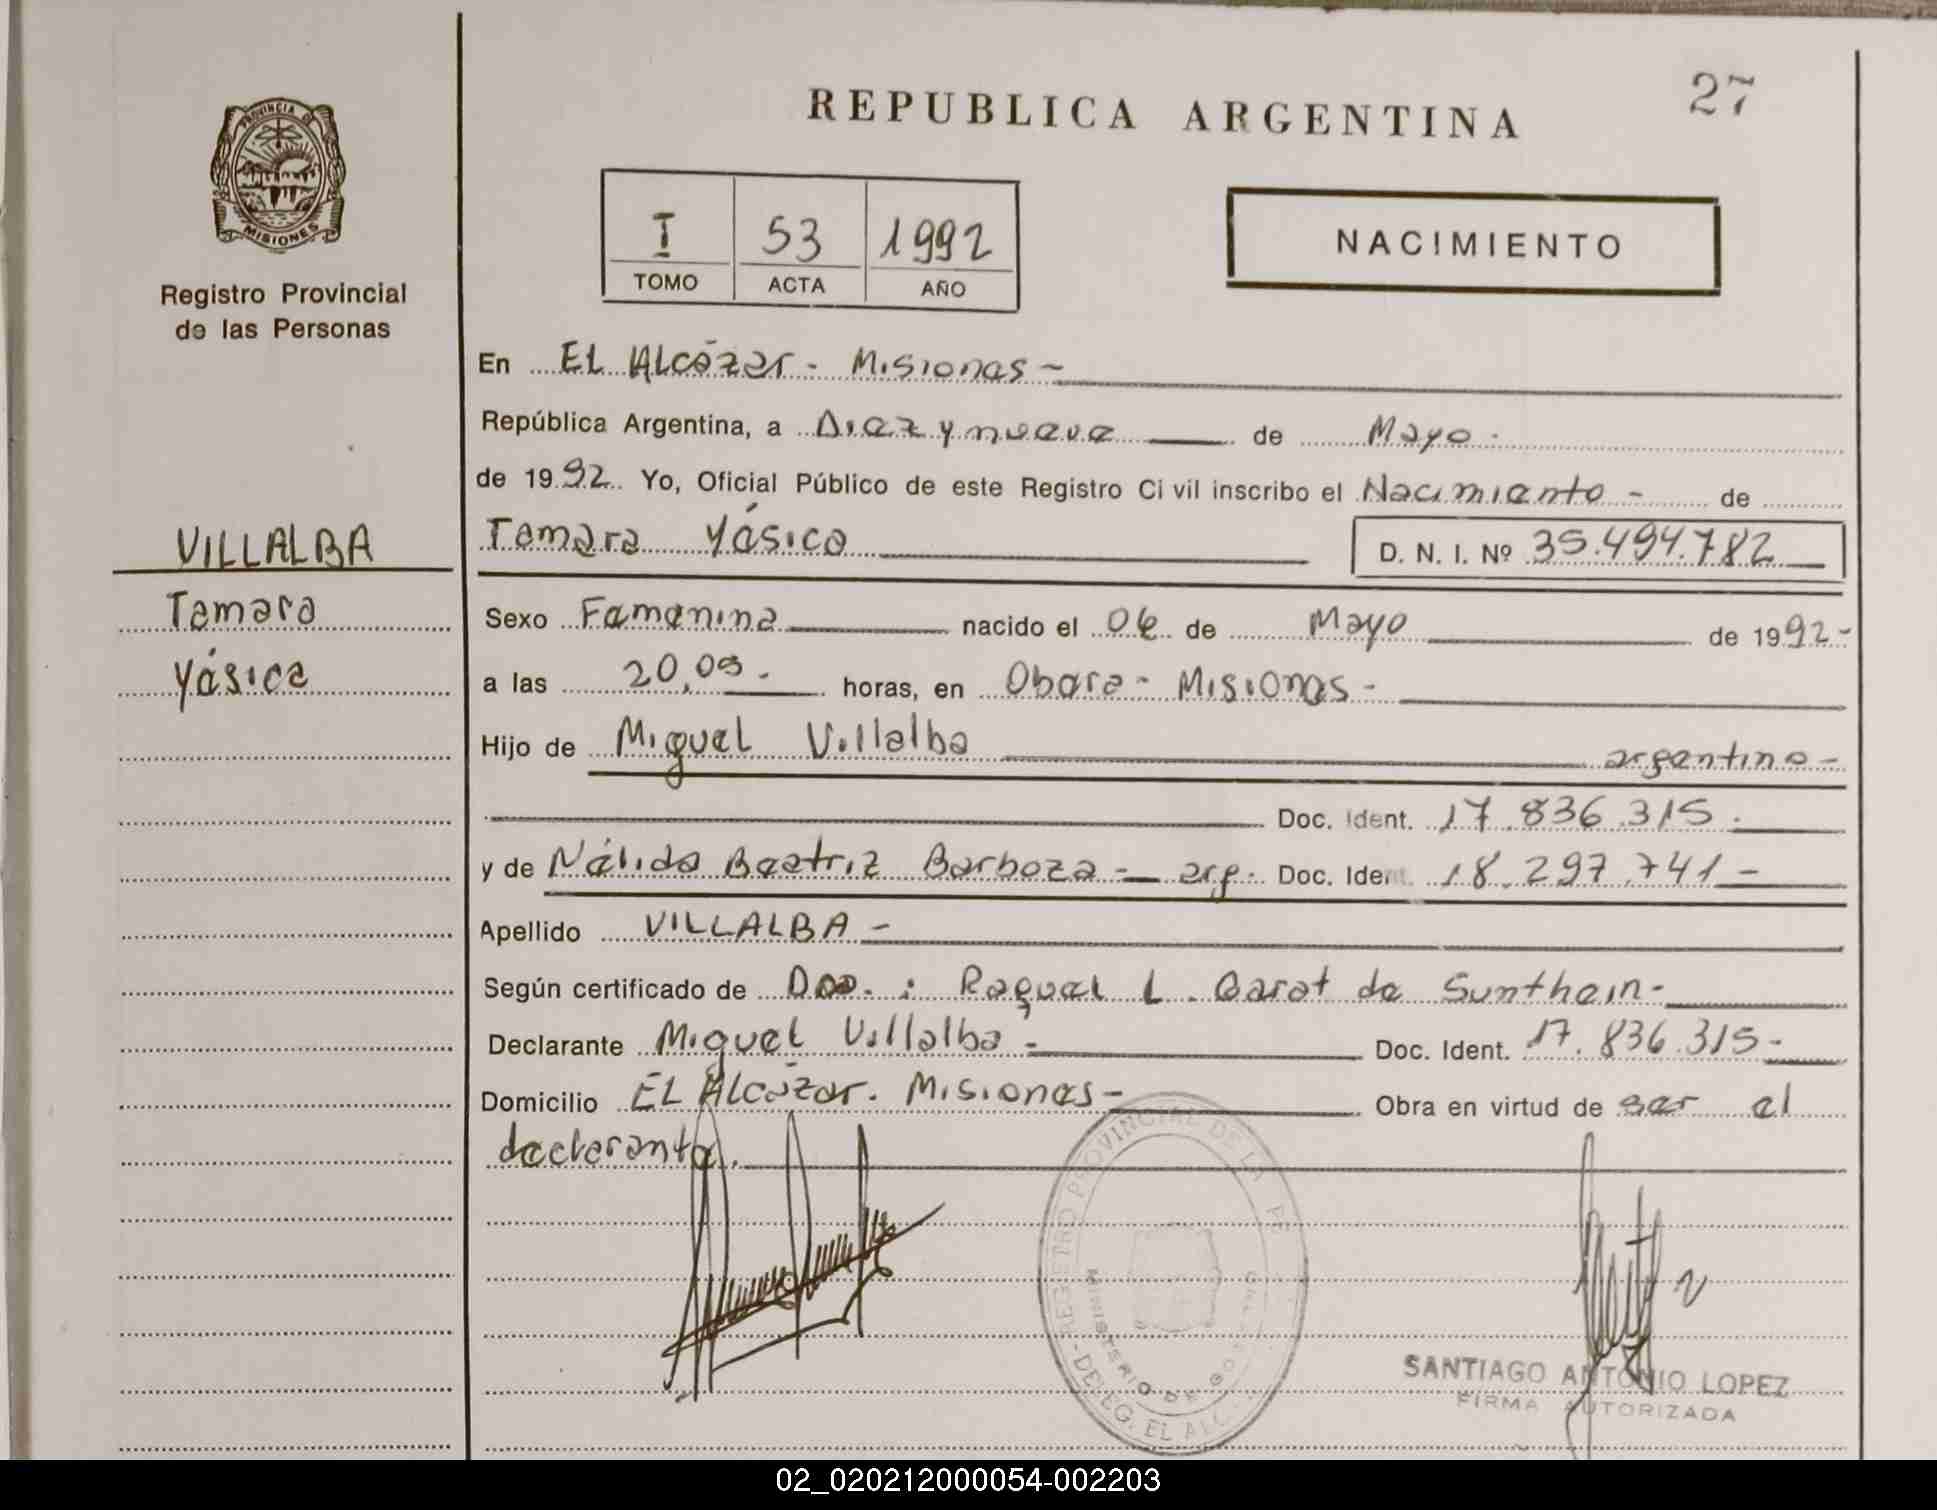 27
REPUBLICA ARGENTINA
PROVINCIA DE
MISIONES
Registro Provincial
de las Personas
I 53 1992
TOMO ACTA AÑO
NACIMIENTO
En El Alcázar - Misiones -
República Argentina, a Diez y nueve de Mayo -
de 1992 Yo, Oficial Público de este Registro Civil inscribo el Nacimiento - de
Tamara Yésica D. N. I. Nº 35.494.782
VILLALBA
Tamara
Yésica
Sexo Femenina nacido el 06 de Mayo de 1992 -
a las 20,05 - horas, en Obera - Misiones -
Hijo de Miguel Villalba argentino -
Doc. Ident. 17.836.315 -
y de Nélida Beatriz Barboza - arg. Doc. Ident. 18.297.741 -
Apellido VILLALBA -
Según certificado de : Raquel L. de Sunthein -
Declarante Miguel Villalba - Doc. Ident. 17.836.315 -
Domicilio El Alcázar. Misiones - Obra en virtud de ser el
declarante.
REGISTRO PROVINCIAL DE LA PE
MINISTERIO DE GO
DELEG. EL ALC
SANTIAGO ANTONIO LOPEZ
FIRMA AUTORIZADA
02_020212000054-002203